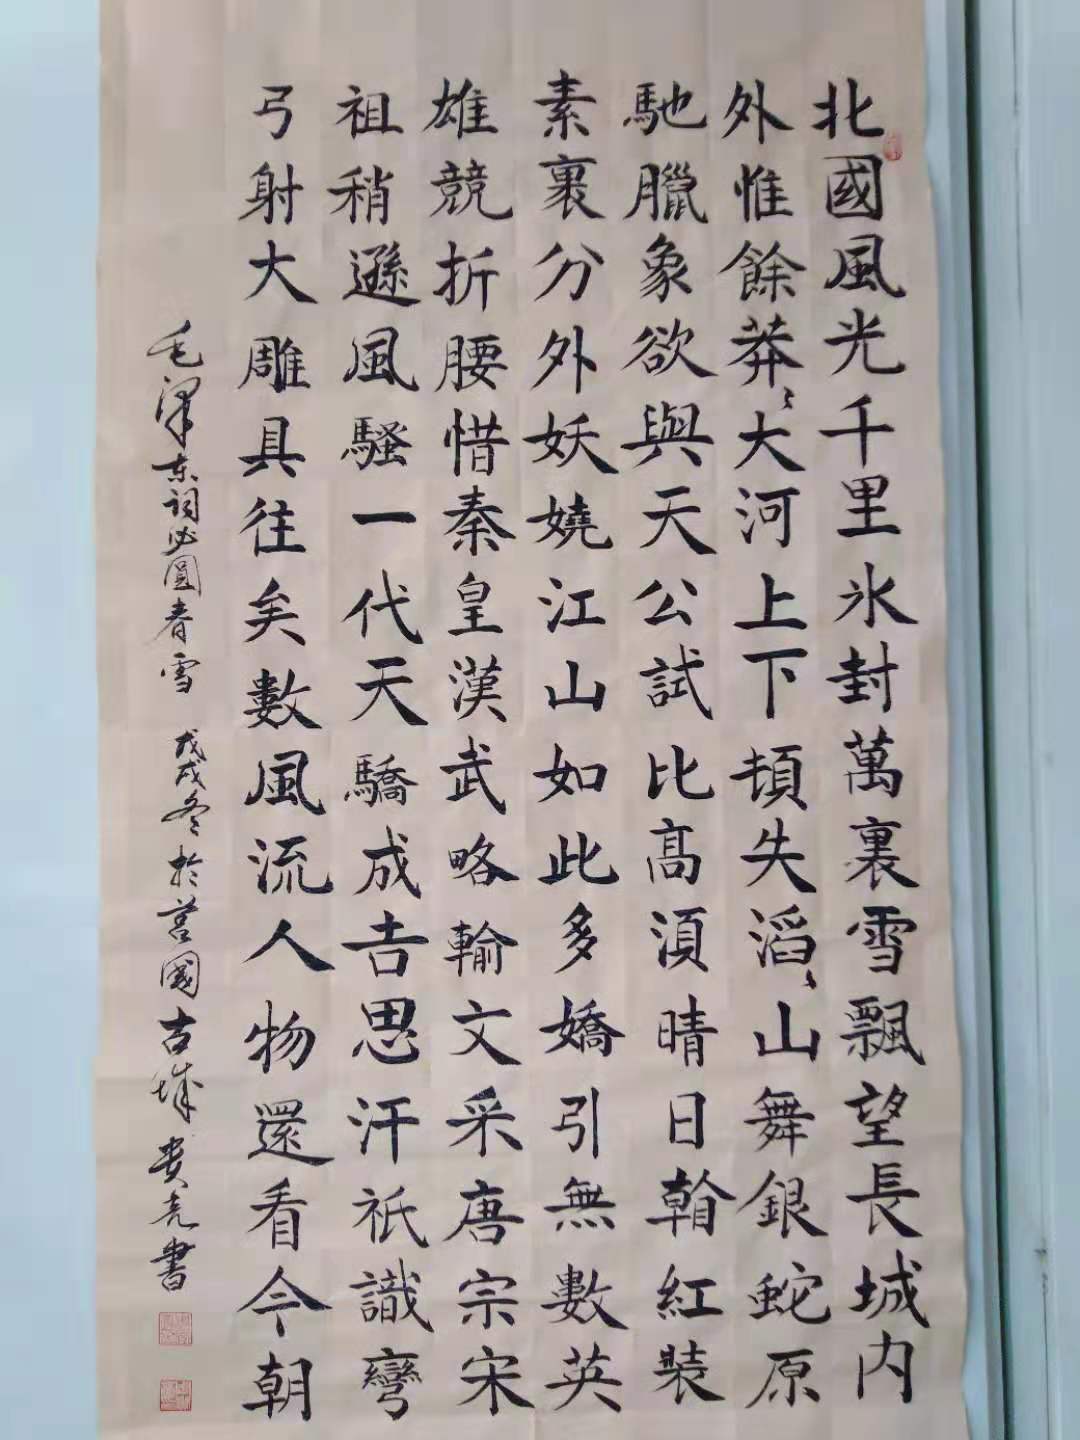 北國風光千里氷封萬裏雪飄望長城内
外惟餘莽〻大河上下頓失滔〻山舞銀蛇原
馳臘象欲與天公試比髙湏晴日翰紅裝
素裹分外妖嬈江山如此多嬌引無數英
雄競折腰惜秦皇漢武略輸文采唐宗宋
祖稍遜風騷一代天驕成吉思汗祇識彎
弓射大雕具往矣數風流人物還看今朝
毛澤东词沁圓春雪 戊戌冬於莒國古城贵亮書